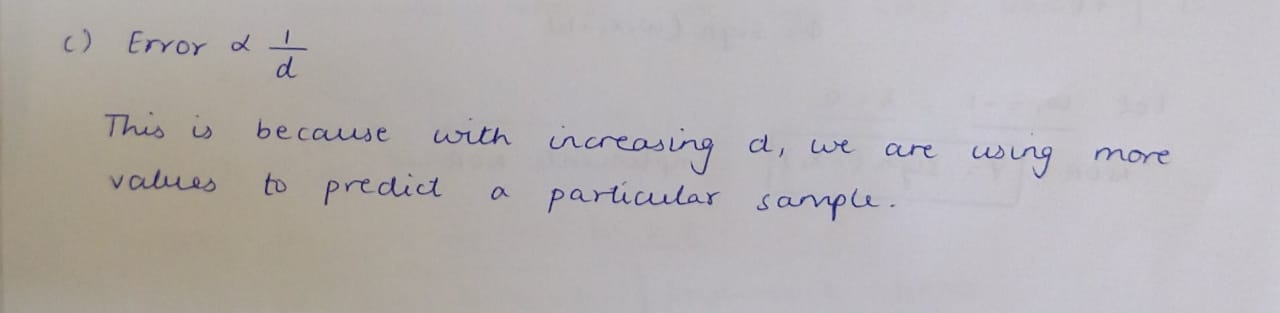 c) Error ∝ 1/d
This is because with increasing d, we are using more
values to predict a particular sample.